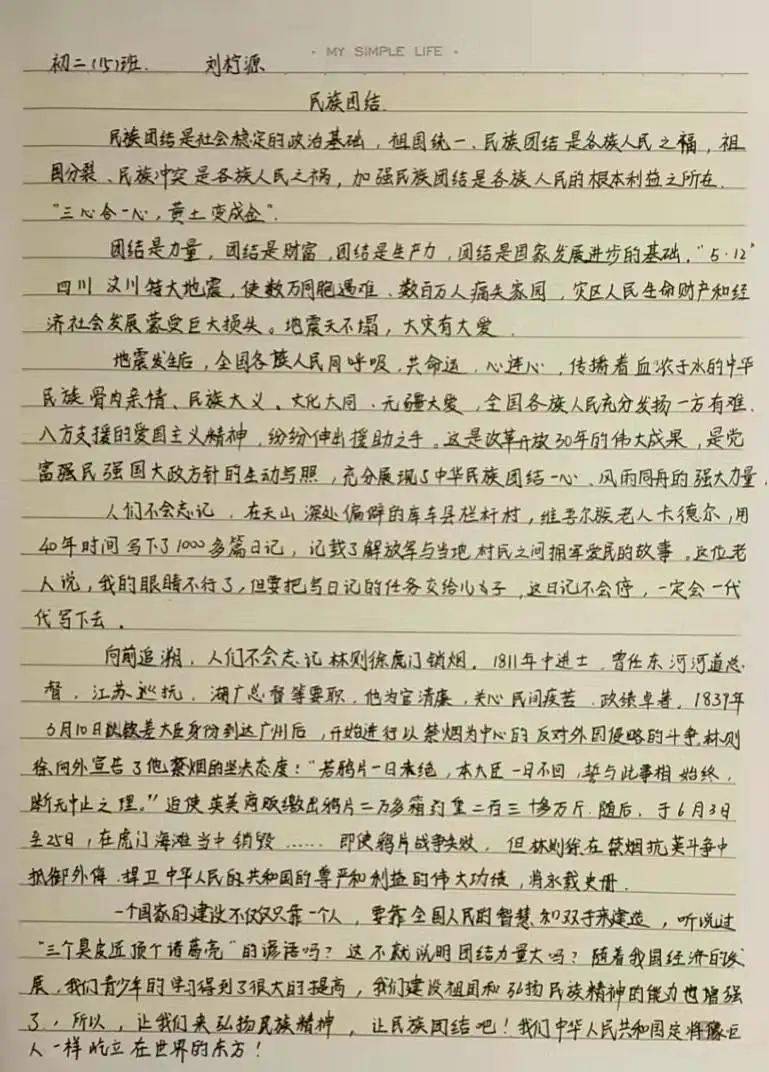 · MY SIMPLE LIFE ·
初二(15)班. 刘柠源
民族团结.
民族团结是社会稳定的政治基础，祖国统一、民族团结是各族人民之福，祖
国分裂、民族冲突是各族人民之祸，加强民族团结是各族人民的根本利益之所在.
“三心合一心，黄土变成金”.
团结是力量，团结是财富，团结是生产力，团结是国家发展进步的基础。“5·12”
四川汶川特大地震，使数万同胞遇难、数百万人痛失家园，灾区人民生命财产和经
济社会发展蒙受巨大损失。地震天不塌，大灾有大爱.
地震发生后，全国各族人民同呼吸、共命运、心连心，传播着血浓于水的中华
民族骨肉亲情、民族大义、文化大同、无疆大爱，全国各族人民充分发扬一方有难、
八方支援的爱国主义精神，纷纷伸出援助之手。这是改革开放30年的伟大成果，是党
富强民强国大政方针的生动写照，充分展现了中华民族团结一心、风雨同舟的强大力量.
人们不会忘记，在天山深处偏僻的库车县栏杆村，维吾尔族老人卡德尔，用
40年时间写下了1000多篇日记，记载了解放军与当地村民之间拥军爱民的故事。这位老
人说，我的眼睛不行了，但要把写日记的任务交给儿子，这日记不会停，一定会一代
代写下去.
向前追溯，人们不会忘记林则徐虎门销烟。1811年中进士，曾任东河河道总
督、江苏巡抚、湖广总督等要职，他为官清廉，关心民间疾苦，政绩卓著。1839年
3月10日以钦差大臣身份到达广州后，开始进行以禁烟为中心的反对外国侵略的斗争，林则
徐向外宣告了他禁烟的坚决态度：“若鸦片一日未绝，本大臣一日不回，誓与此事相始终，
断无中止之理。”迫使英美商贩缴出鸦片二万多箱约重二百三十多万斤.随后，于6月3日
至25日，在虎门海滩当中销毁……即使鸦片战争失败，但林则徐在禁烟抗英斗争中
抵御外侮、捍卫中华人民的共和国的尊严和利益的伟大功绩，将永载史册.
一个国家的建设不仅仅只靠一个人，要靠全国人民的智慧和双手来建造，听说过
“三个臭皮匠顶个诸葛亮”的谚语吗？这不就说明团结力量大吗？随着我国经济的发
展，我们青少年的学习得到了很大的提高，我们建设祖国和弘扬民族精神的能力也增强
了，所以，让我们来弘扬民族精神，让民族团结吧！我们中华人民共和国定将像巨
人一样屹立在世界的东方！